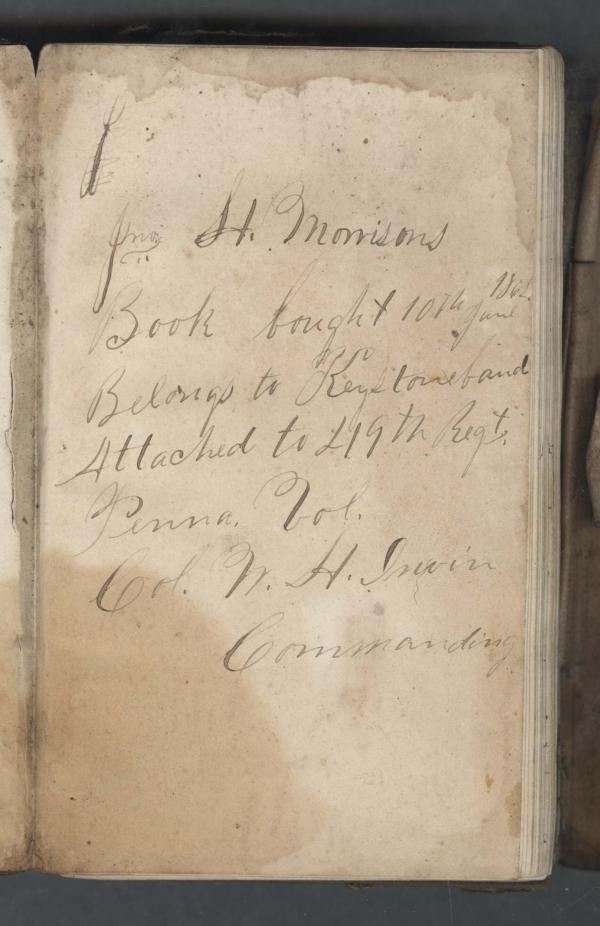 Jno H. Morrisons
Book bought 10th June 1862
Belongs to Keystone band
Attached to 49th Regt.
Penna. Vol.
Col. W. H. Irwin
Commanding